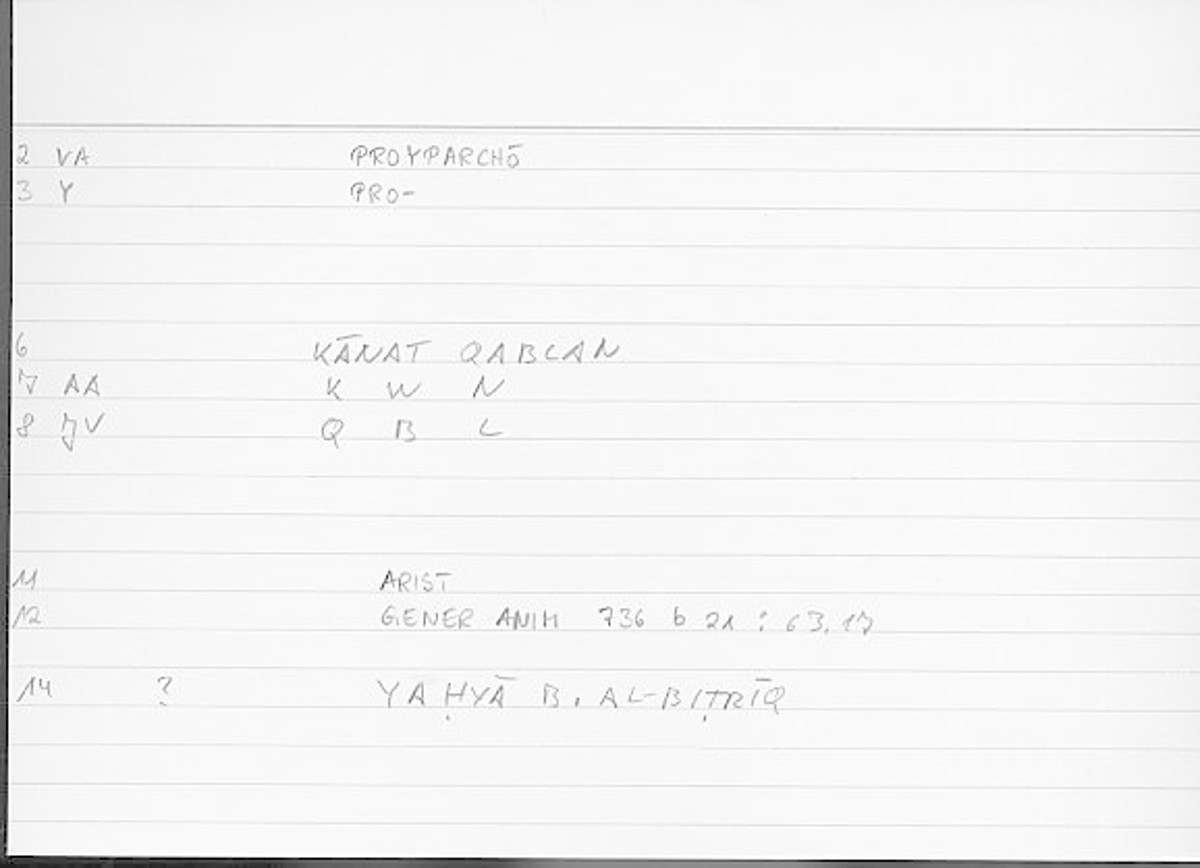 2 VA PROYPARCHŌ
3 Y PRO-
6 KĀNAT QABLAN
7 AA K W N
8 JV Q B L
11 ARIST
12 GENER ANIM 736 b 21 : 63.17
14 ? YAḤYĀ B. AL-BIṬRĪQ